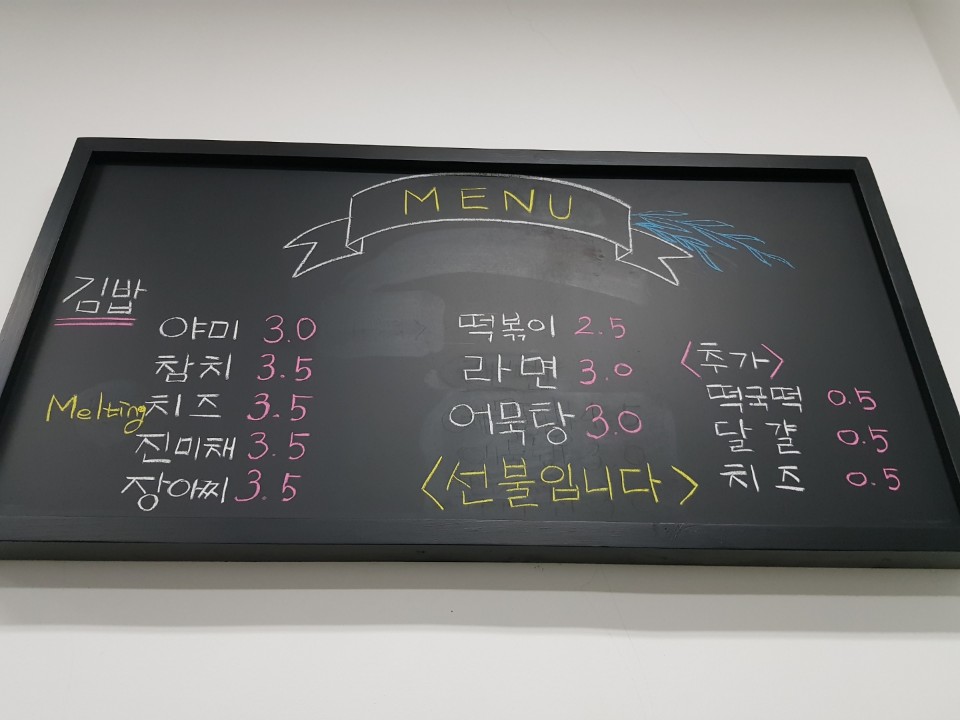 MENU
김밥
야미 3.0
참치 3.5
Melting치즈 3.5
진미채 3.5
장아찌 3.5
떡볶이 2.5
라면 3.0
어묵탕 3.0
<선불입니다>
<추가>
떡국떡 0.5
달걀 0.5
치즈 0.5